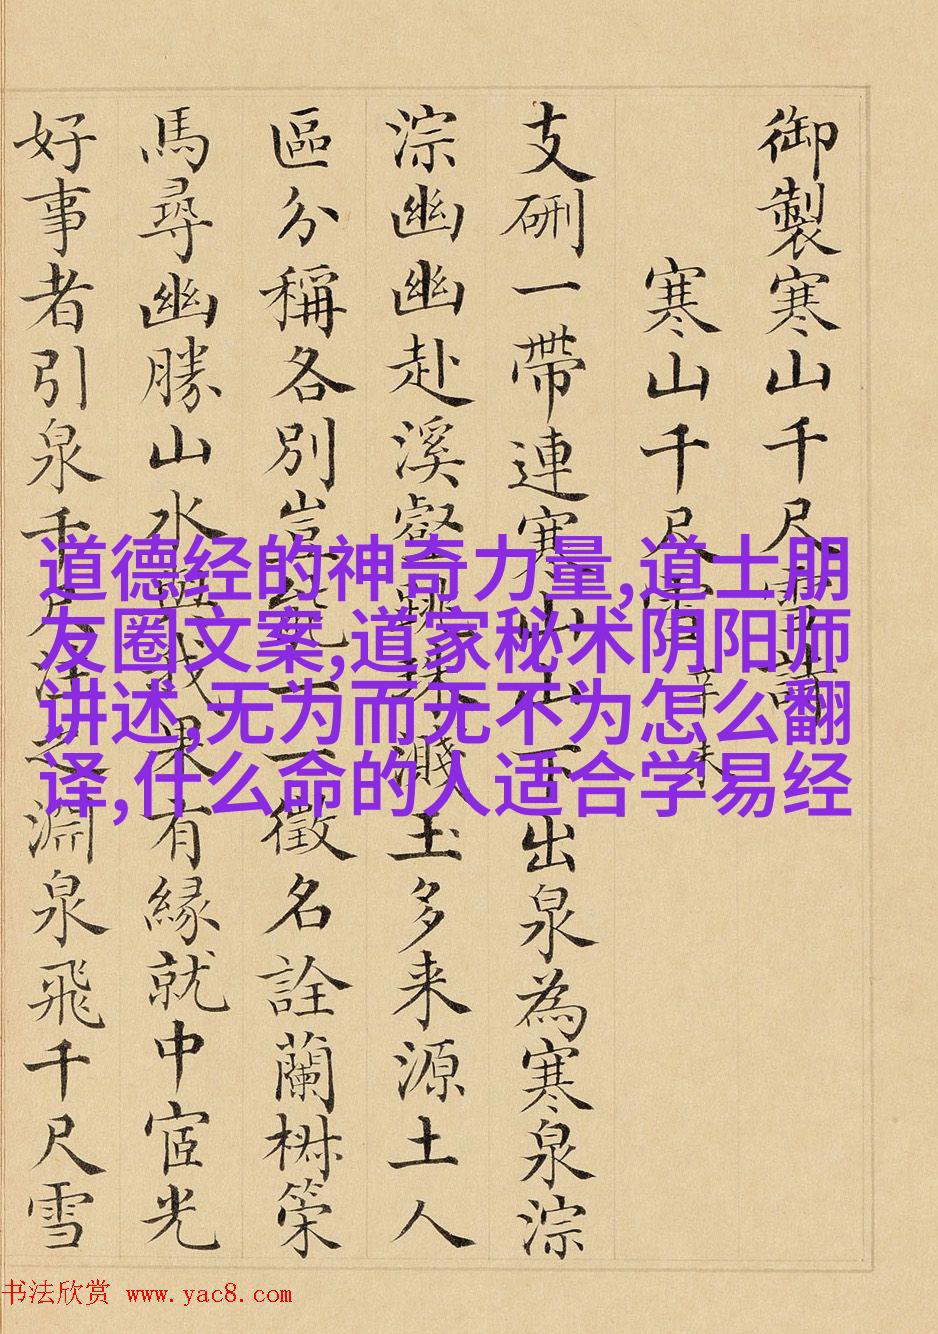 御製寒山千尺雪詩
寒山千尺雪 辛未
支硎一帶連寒山山下出泉為寒泉淙
淙幽幽赴溪壑跳珠濺玉多来源土人
區分稱各別豈能一一徵名詮蘭椒策
馬尋幽勝山水與我果有緣就中宧光
好事者引泉千尺注之淵泉飛千尺雪
道德经的神奇力量,道士朋
友圈文案,道家秘术阴阳师
讲述,无为而无不为怎么翻
译,什么命的人适合学易经
书法欣赏 www.yac8.com